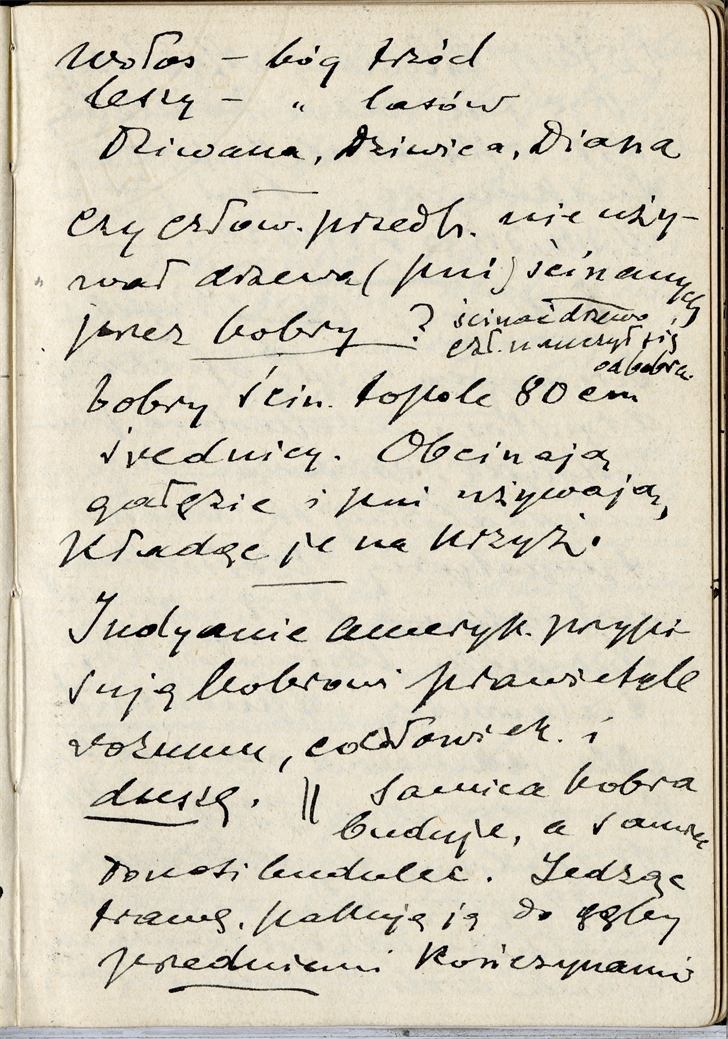 Wołos – bóg trzód
Leszy – " lasów
Dziwana, Dziwica, Diana
czy człow. przedh. nie uży-
wał drzewa (pni) ścinanych
przez bobry ?
ścinać drzewo
czł. nauczył się
od bobra.
bobry ścin. topole 80 cm
średnicy. Obcinają
gałęzie i pni używają,
kładąc je na krzyż.
Indyanie ameryk. przypi
sują bobrowi prawie tyle
rozumu, co człowiek. i
duszę. || Samica bobra
buduje, a samiec
donosi budulec. Jedząc
trawę, pakują ją do gęby
przedniemi kończynami